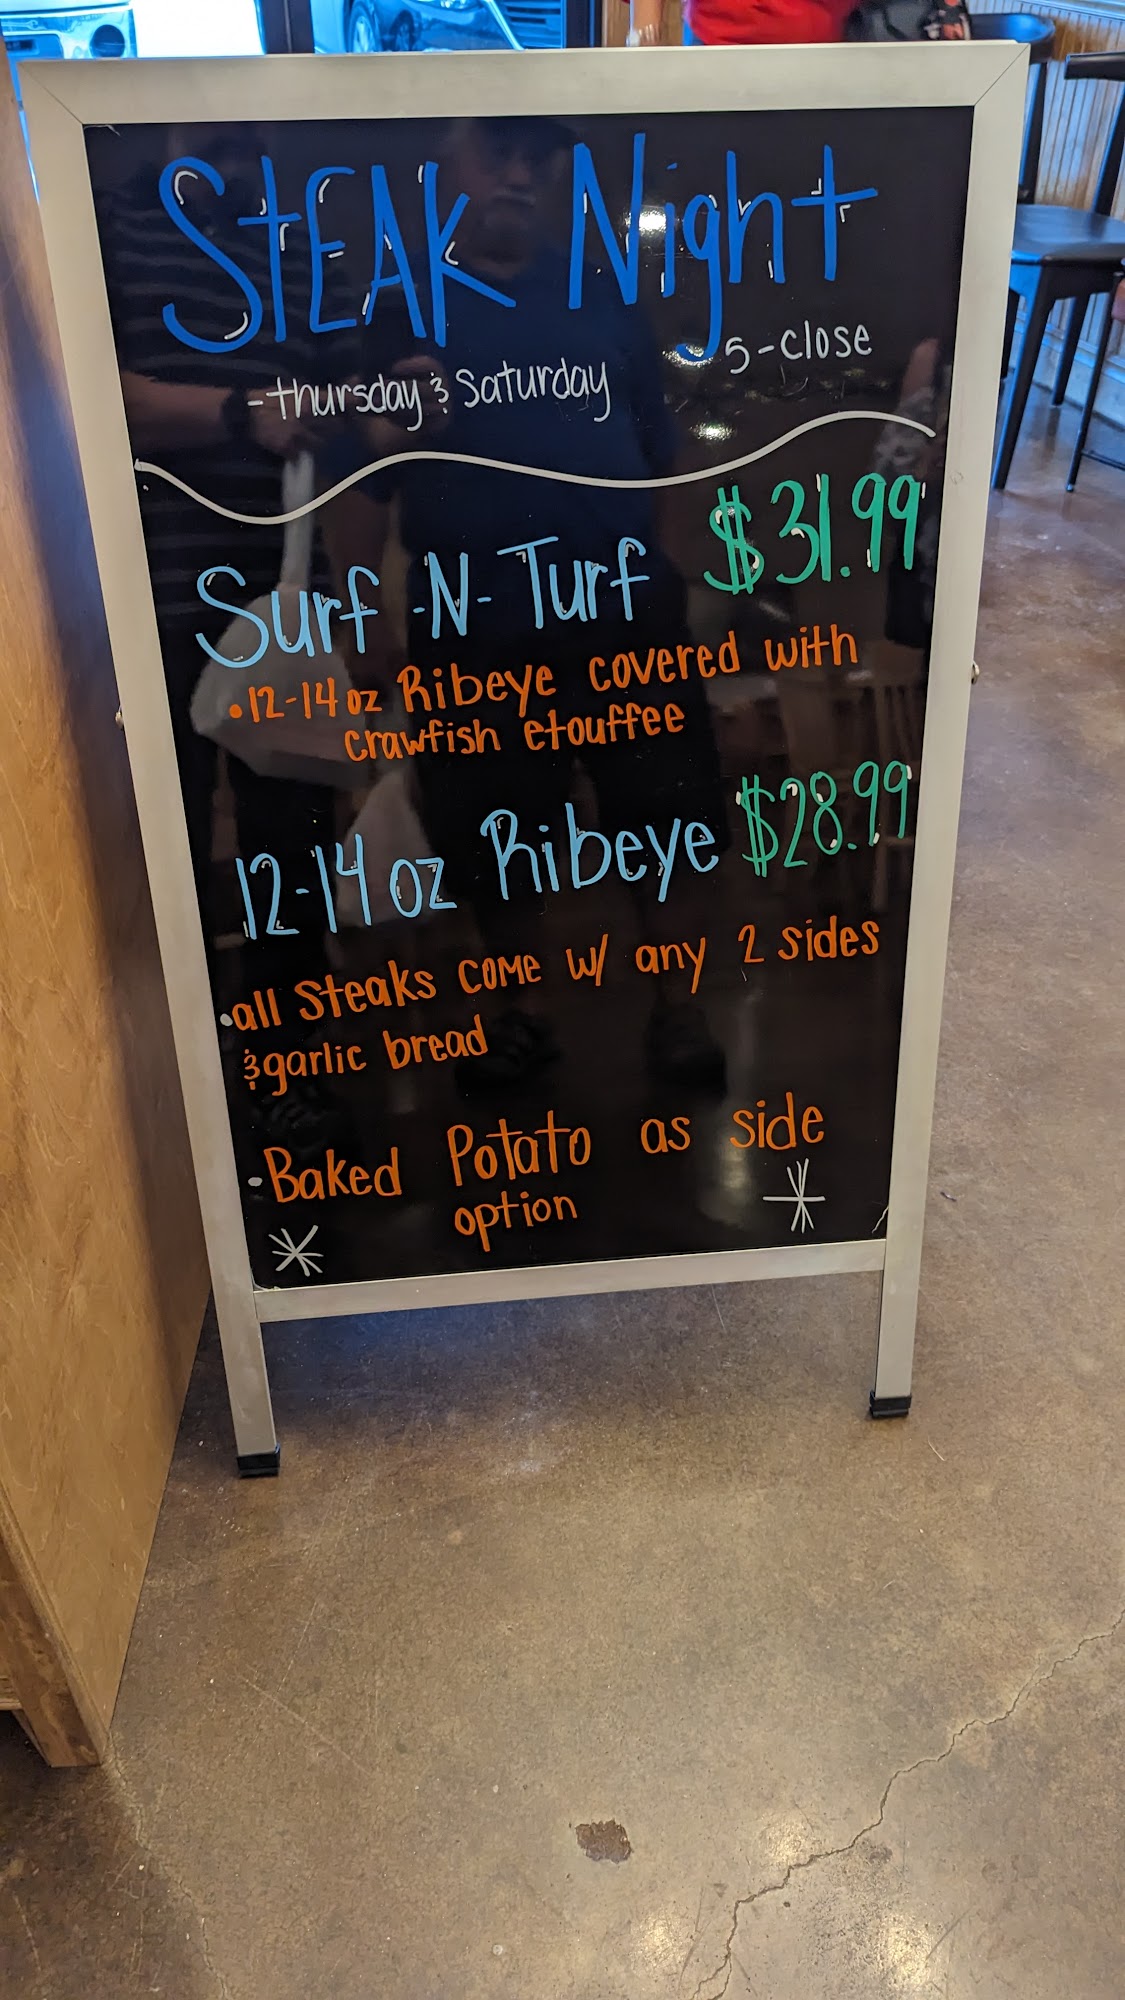 STEAK Night
-thursday & Saturday 5-close
Surf-N-Turf $31.99
•12-14oz Ribeye covered with
crawfish etouffee
12-14oz Ribeye $28.99
•all Steaks come w/ any 2 sides
& garlic bread
•Baked Potato as side
option